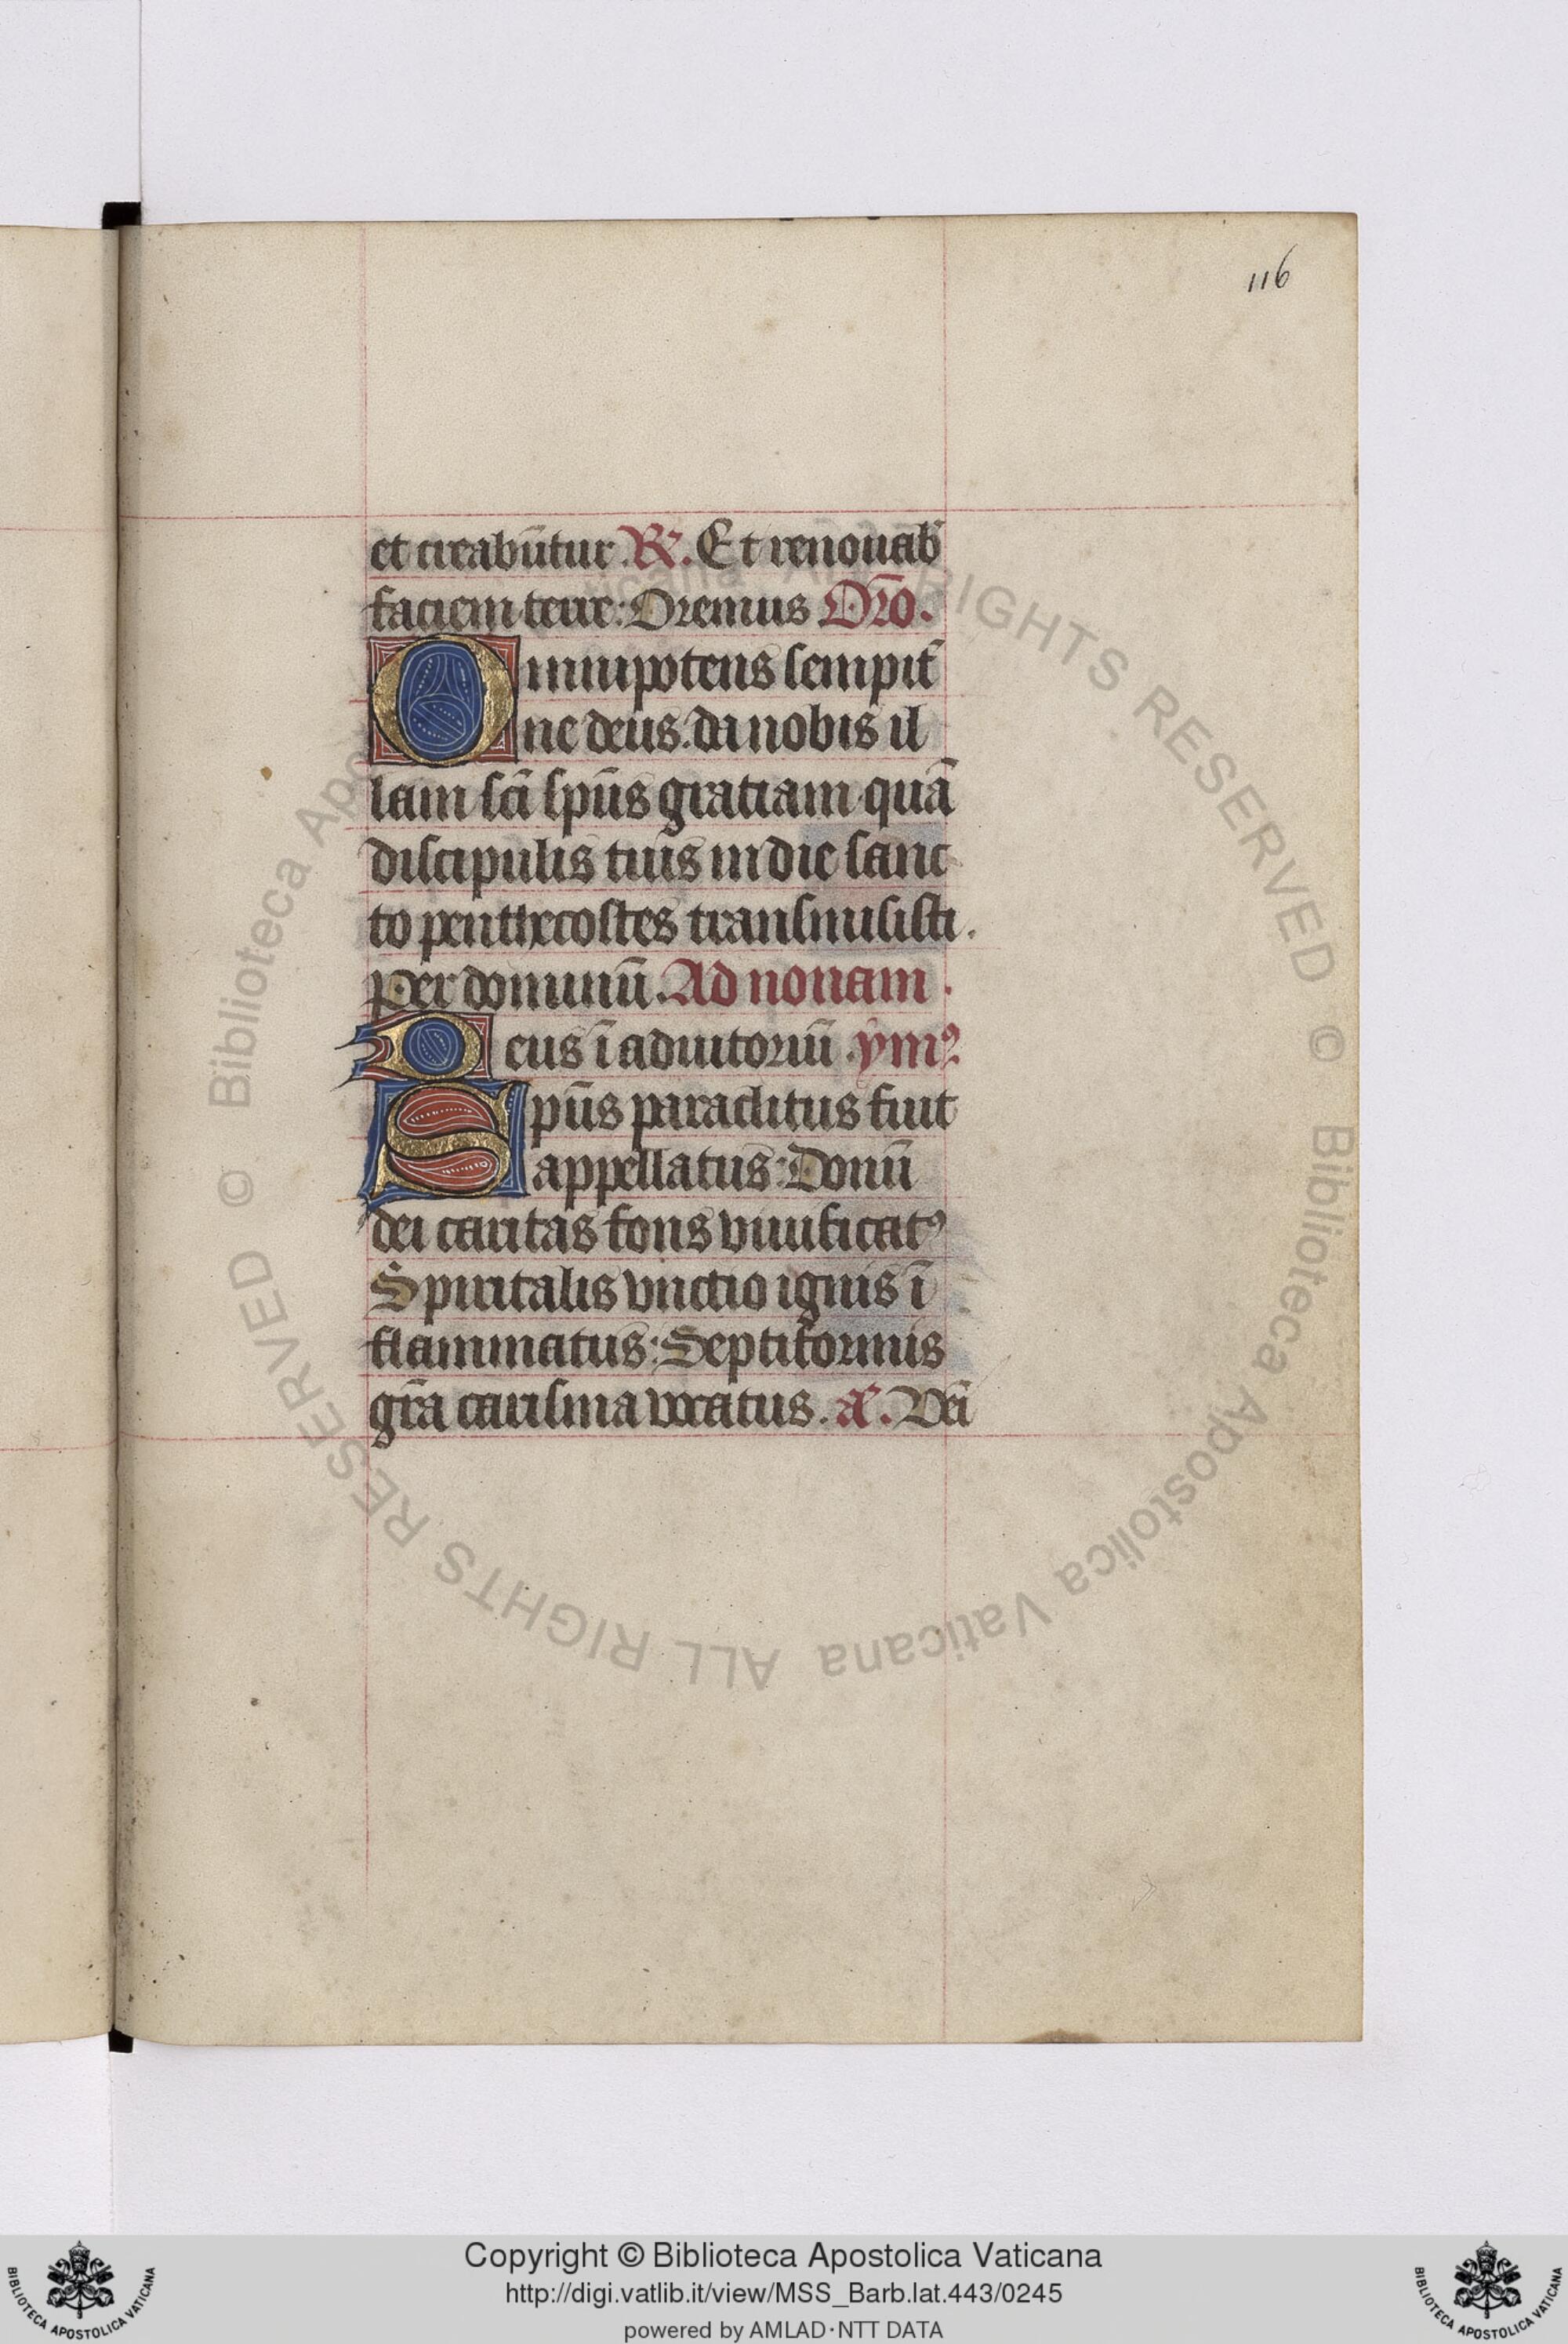 116
et creabūtur. R̷. Et renouab̾
faciem terre: Oremus Oro̅.
Omnipotens sempit̄
ne deus. da nobis il
lam sc̄i sp̄us gratiam quā
discipulis tuis in die sanc
to penthecostes transmisisti.
Per dominū. Ad nonam.
Deus ī adiutoriū. ymꝯ
Sp̄us paraclitus fuit
appellatus: Donū
dei caritas fons viuificatꝯ
Spiritalis vnctio ignis ī
flammatus: Septiformis
gr̄a carisma vocatus. a᷒. Vēi
Biblioteca Apostolica Vaticana ALL RIGHTS RESERVED ©
Biblioteca Apostolica Vaticana ALL RIGHTS RESERVED ©
Copyright © Biblioteca Apostolica Vaticana
http://digi.vatlib.it/view/MSS_Barb.lat.443/0245
powered by AMLAD·NTT DATA
BIBLIOTECA APOSTOLICA VATICANA
BIBLIOTECA APOSTOLICA VATICANA